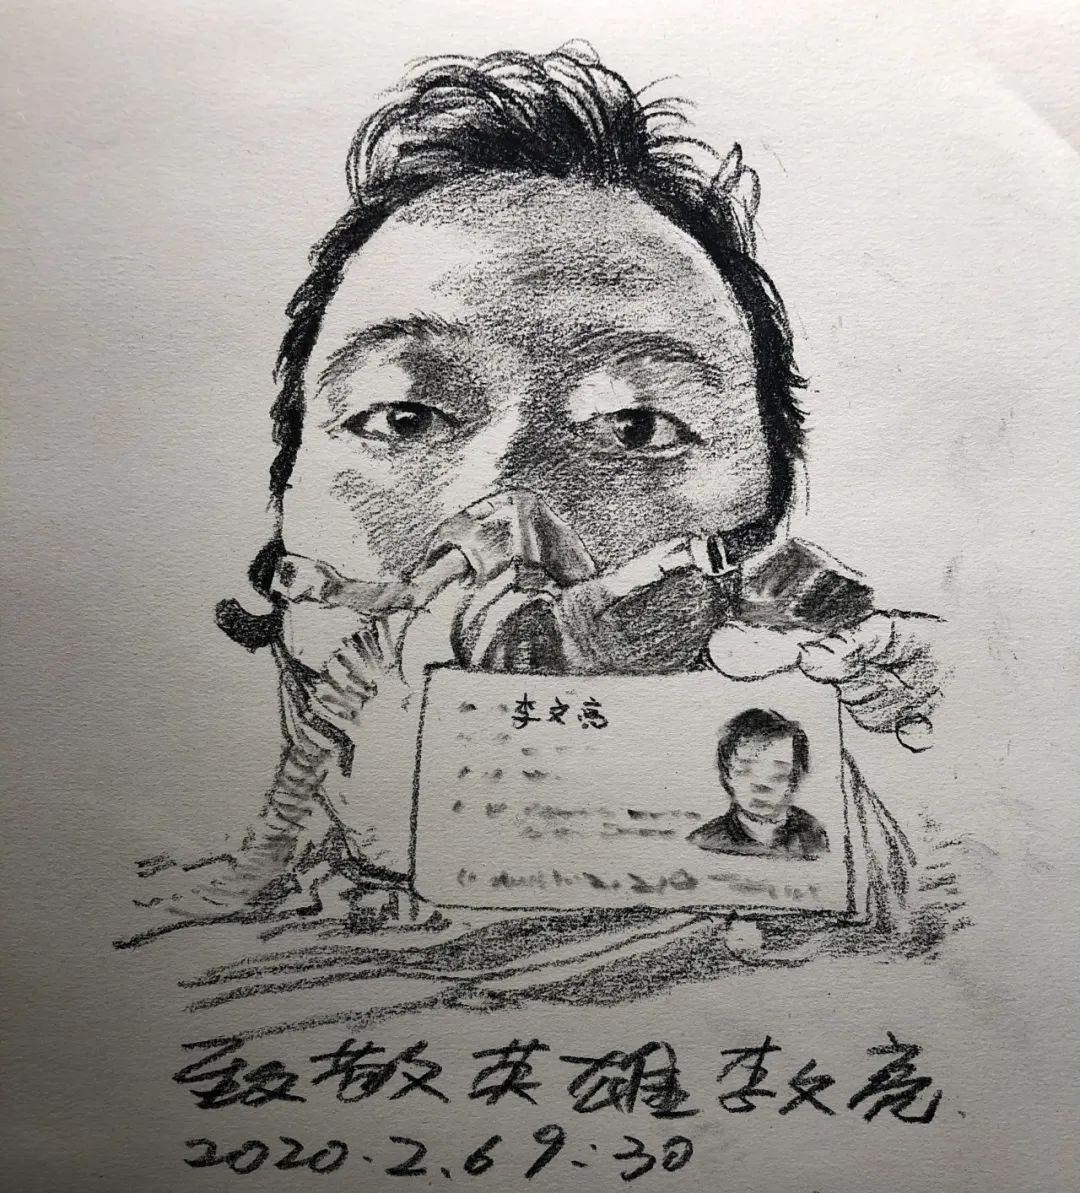 李文亮
致敬英雄李文亮
2020.2.6 9:30